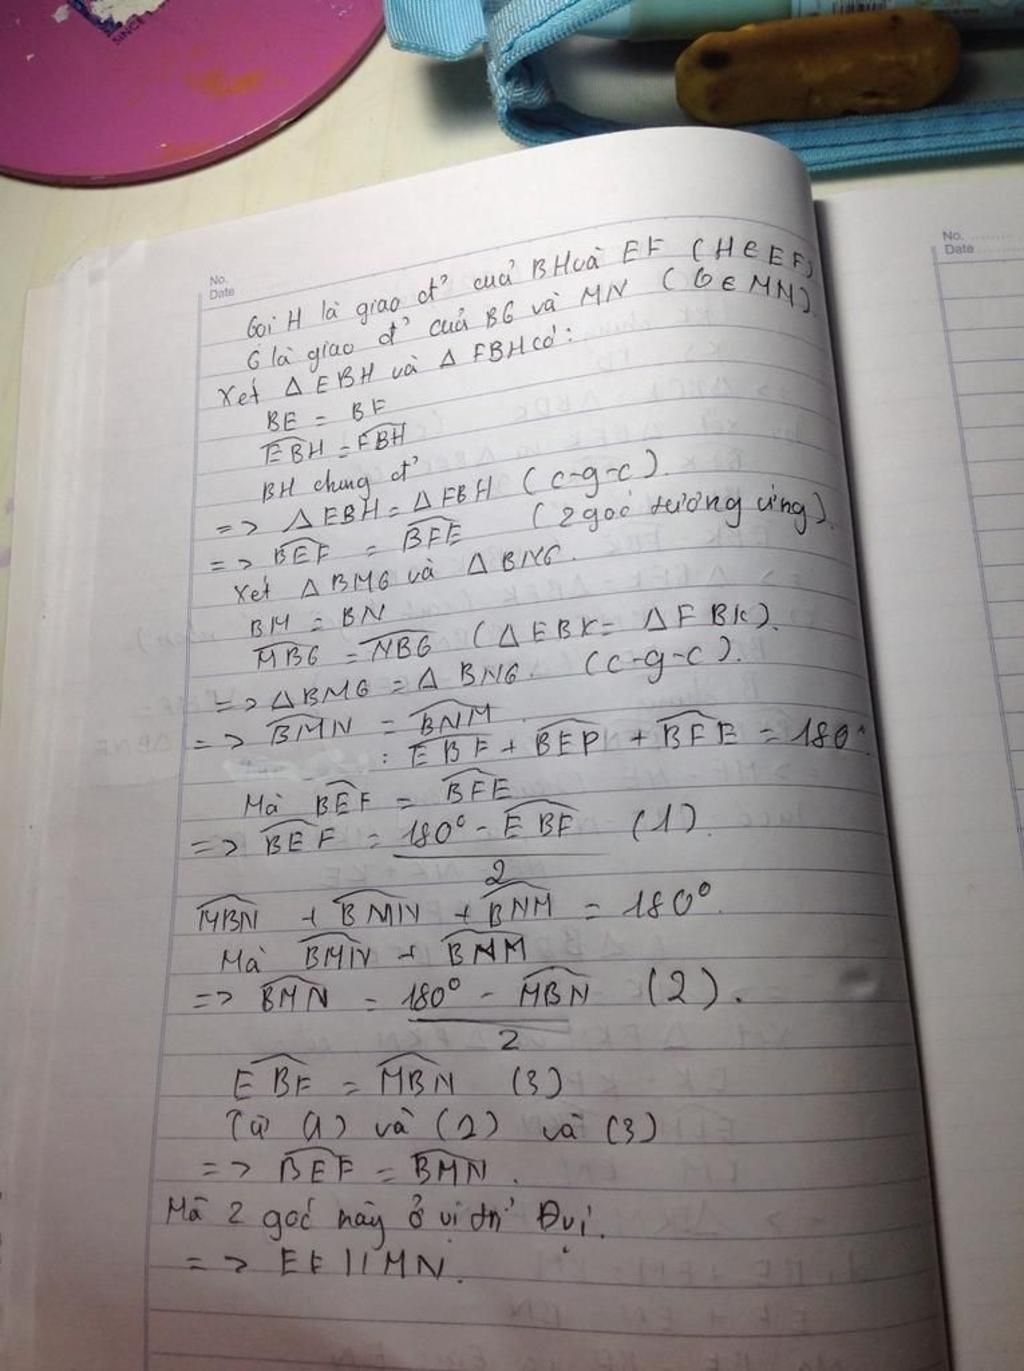 SINCE
No.
Date
Gọi H là giao đ' của BH và EF (H∈EF)
G là giao đ' của BG và MN (G∈MN).
Xét ΔEBH và ΔFBH có:
BE = BF
EBH = FBH
BH chung đ'
=> ΔEBH = ΔFBH (c-g-c).
=> BEF = BFE (2 góc tương ứng).
Xét ΔBMG và ΔBNG.
BM = BN
MBG = NBG (ΔEBK = ΔFBK).
=> ΔBMG = ΔBNG. (c-g-c).
=> BMN = BNM.
: EBF + BEF + BFE = 180°.
Mà BEF = BFE
=> BEF = 180° - EBF (1).
2
MBN + BMN + BNM = 180°.
Mà BMN + BNM
=> BMN = 180° - MBN (2).
2
EBF = MBN (3)
Từ (1) và (2) và (3)
=> BEF = BMN.
Mà 2 góc này ở vị trí Đvị.
=> EF // MN.
No.
Date